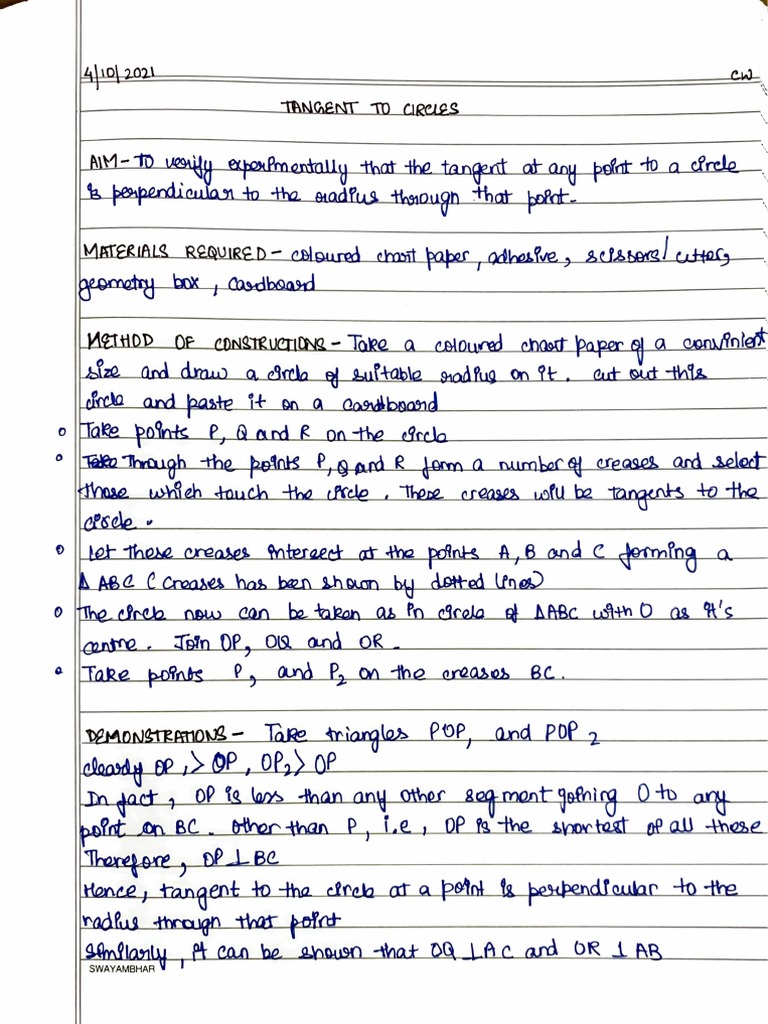 4/10/2021 CW
TANGENT TO CIRCLES
AIM - To verify experimentally that the tangent at any point to a circle
is perpendicular to the radius through that point.
MATERIALS REQUIRED - coloured chart paper, adhesive, scissors/cutters,
geometry box, cardboard
METHOD OF CONSTRUCTIONS - Take a coloured chart paper of a convinient
size and draw a circle of suitable radius on it. cut out this
circle and paste it on a cardboard
Take points P, Q and R on the circle
Through the points P, Q and R form a number of creases and select
those which touch the circle. These creases will be tangents to the
circle.
Let these creases intersect at the points A, B and C forming a
Δ ABC (creases has been shown by dotted lines)
The circle now can be taken as in circle of ΔABC with O as it's
centre. Join OP, OQ and OR.
Take points P₁ and P₂ on the creases BC.
DEMONSTRATIONS - Take triangles POP₁ and POP₂
clearly OP₁ > OP, OP₂ > OP
In fact, OP is less than any other segment joining O to any
point on BC. Other than P, i.e, OP is the shortest of all these
Therefore, OP ⊥ BC
Hence, tangent to the circle at a point is perpendicular to the
radius through that point
Similarly, it can be shown that OQ ⊥ AC and OR ⊥ AB
SWAYAMBHAR